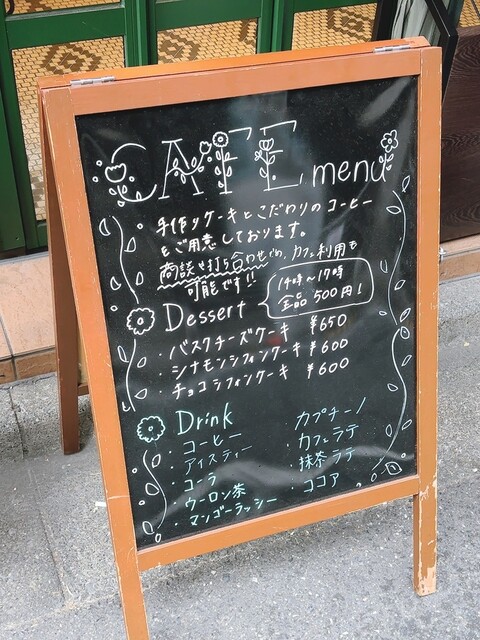 CAFE menu
手作りケーキとこだわりのコーヒー
をご用意しております。
商談や打ち合わせetc、カフェ利用も
可能です!!
Dessert
14時〜17時
全品 500円!
・バスクチーズケーキ ¥650
・シナモンシフォンケーキ ¥600
・チョコシフォンケーキ ¥600
Drink
・コーヒー
・アイスティー
・コーラ
・ウーロン茶
・マンゴーラッシー
・カプチーノ
・カフェラテ
・抹茶ラテ
・ココア